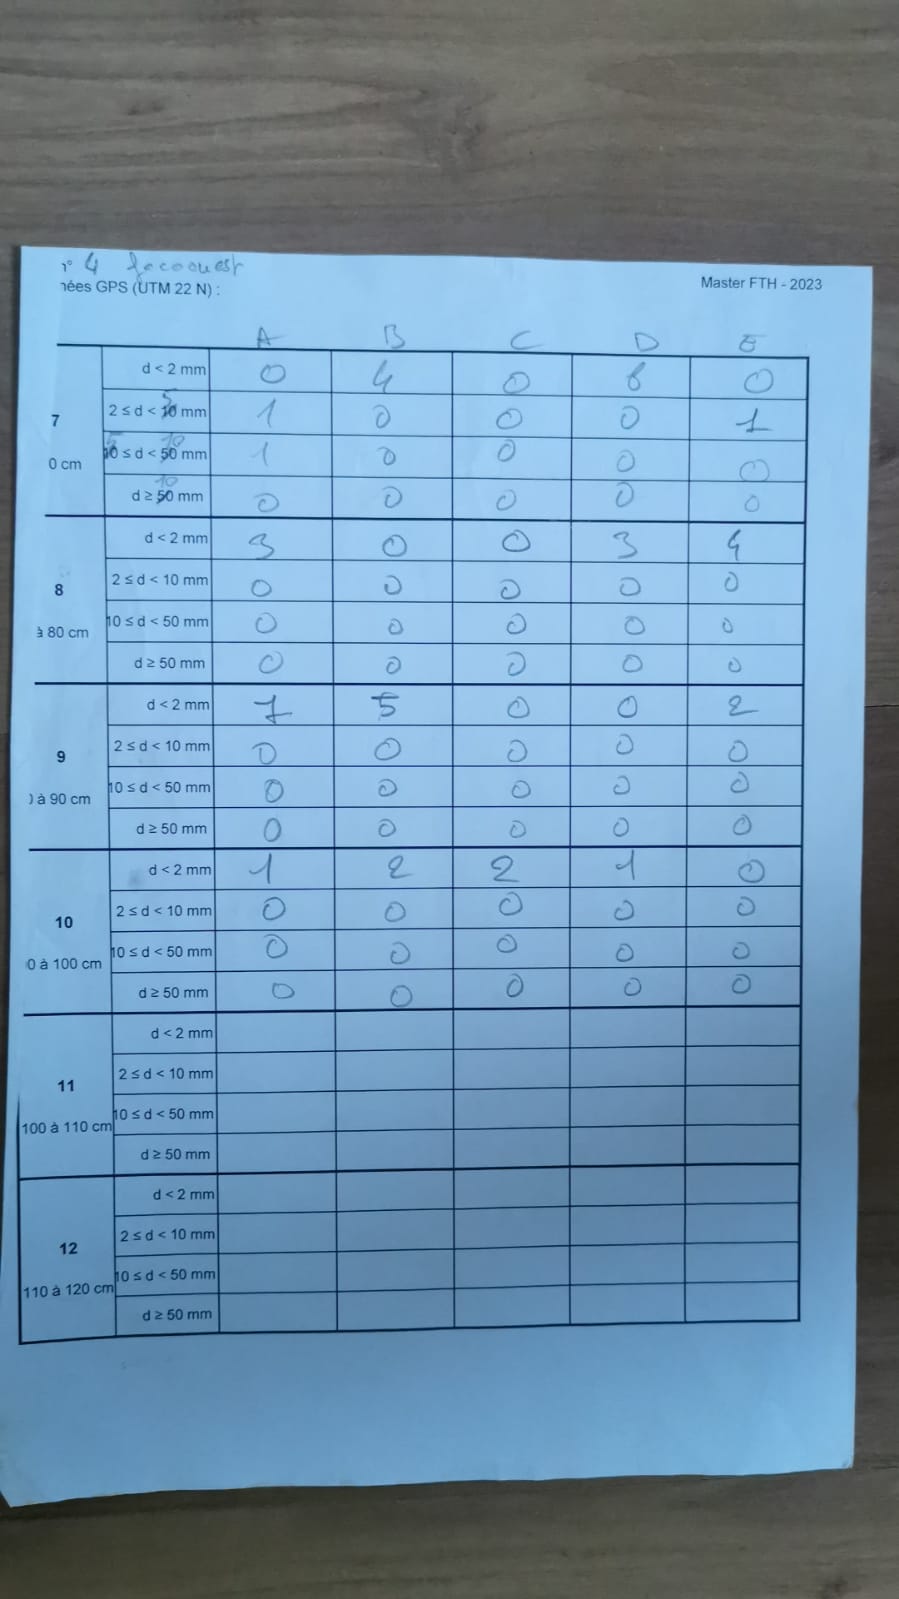 n° 4
Master FTH - 2023
nées GPS (UTM 22 N) :
A B C D E
7
0 cm
d < 2 mm 0 4 0 8 0
2 ≤ d < 5 mm 1 0 0 0 1
5 ≤ d < 10 mm 1 0 0 0 0
d ≥ 10 mm 0 0 0 0 0
8
à 80 cm
d < 2 mm 3 0 0 3 4
2 ≤ d < 10 mm 0 0 0 0 0
10 ≤ d < 50 mm 0 0 0 0 0
d ≥ 50 mm 0 0 0 0 0
9
0 à 90 cm
d < 2 mm 7 5 0 0 2
2 ≤ d < 10 mm 0 0 0 0 0
10 ≤ d < 50 mm 0 0 0 0 0
d ≥ 50 mm 0 0 0 0 0
10
0 à 100 cm
d < 2 mm 1 2 2 1 0
2 ≤ d < 10 mm 0 0 0 0 0
10 ≤ d < 50 mm 0 0 0 0 0
d ≥ 50 mm 0 0 0 0 0
11
100 à 110 cm
d < 2 mm
2 ≤ d < 10 mm
10 ≤ d < 50 mm
d ≥ 50 mm
12
110 à 120 cm
d < 2 mm
2 ≤ d < 10 mm
10 ≤ d < 50 mm
d ≥ 50 mm